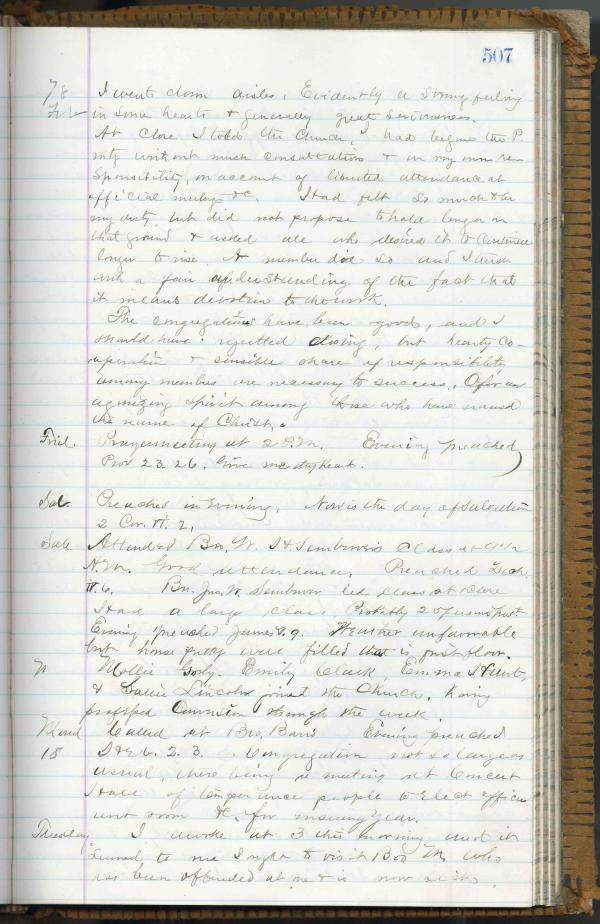 507
78 I went down aisles, Evidently a Strong feeling
Feb in Some hearts & generally great Seriousness.
At close I told the Church, I had begun the P.
mtg without much consultation & on my own re
Sponsibility, on account of limited attendance at
official meetings &c. I had felt So much the
my duty but did not propose to hold longer on
that ground & asked all who desired it to Continue
longer to rise. A number did So and I trust
with a fair understanding of the fact that
it means devotion to the work.
The congregations have been good, and I
should have regretted closing, but hearty Co-
operation & sensible share of responsibility
among members are necessary to success. O for an
agonizing Spirit among those who have named
the name of Christ.
Frid. Prayermeeting at 2 P.M. Evening preached
Prov 23.26. Give me thy heart.
Sat. Preached in Evening. Now is the day of Salvation
2 Cor. VI. 2,
Sab Attended Bro. W. Class at 9 1/2
A.M. Good attendance. Preached Zech
IV.6. Bro. Jno. W. led class at close
Had a large class. Probably 2 of us
Evening preached James Weather unfavorable
but house pretty well filled that is first floor.
N Mollie Emily Clark, Emma Hunt,
& Sallie Lincoln joined the Church, having
professed Conversion through the week.
Mond Called at Bro. Evening preached
18 2. 3. Congregation not so large as
usual, there being a meeting at Concert
Hall of temperance people to Elect officers
and room &c. for ensuing Year.
Tuesday I awoke at 3 this morning and it
Seemed to me I ought to visit Bro M. who
has been offended at me & is now sick.